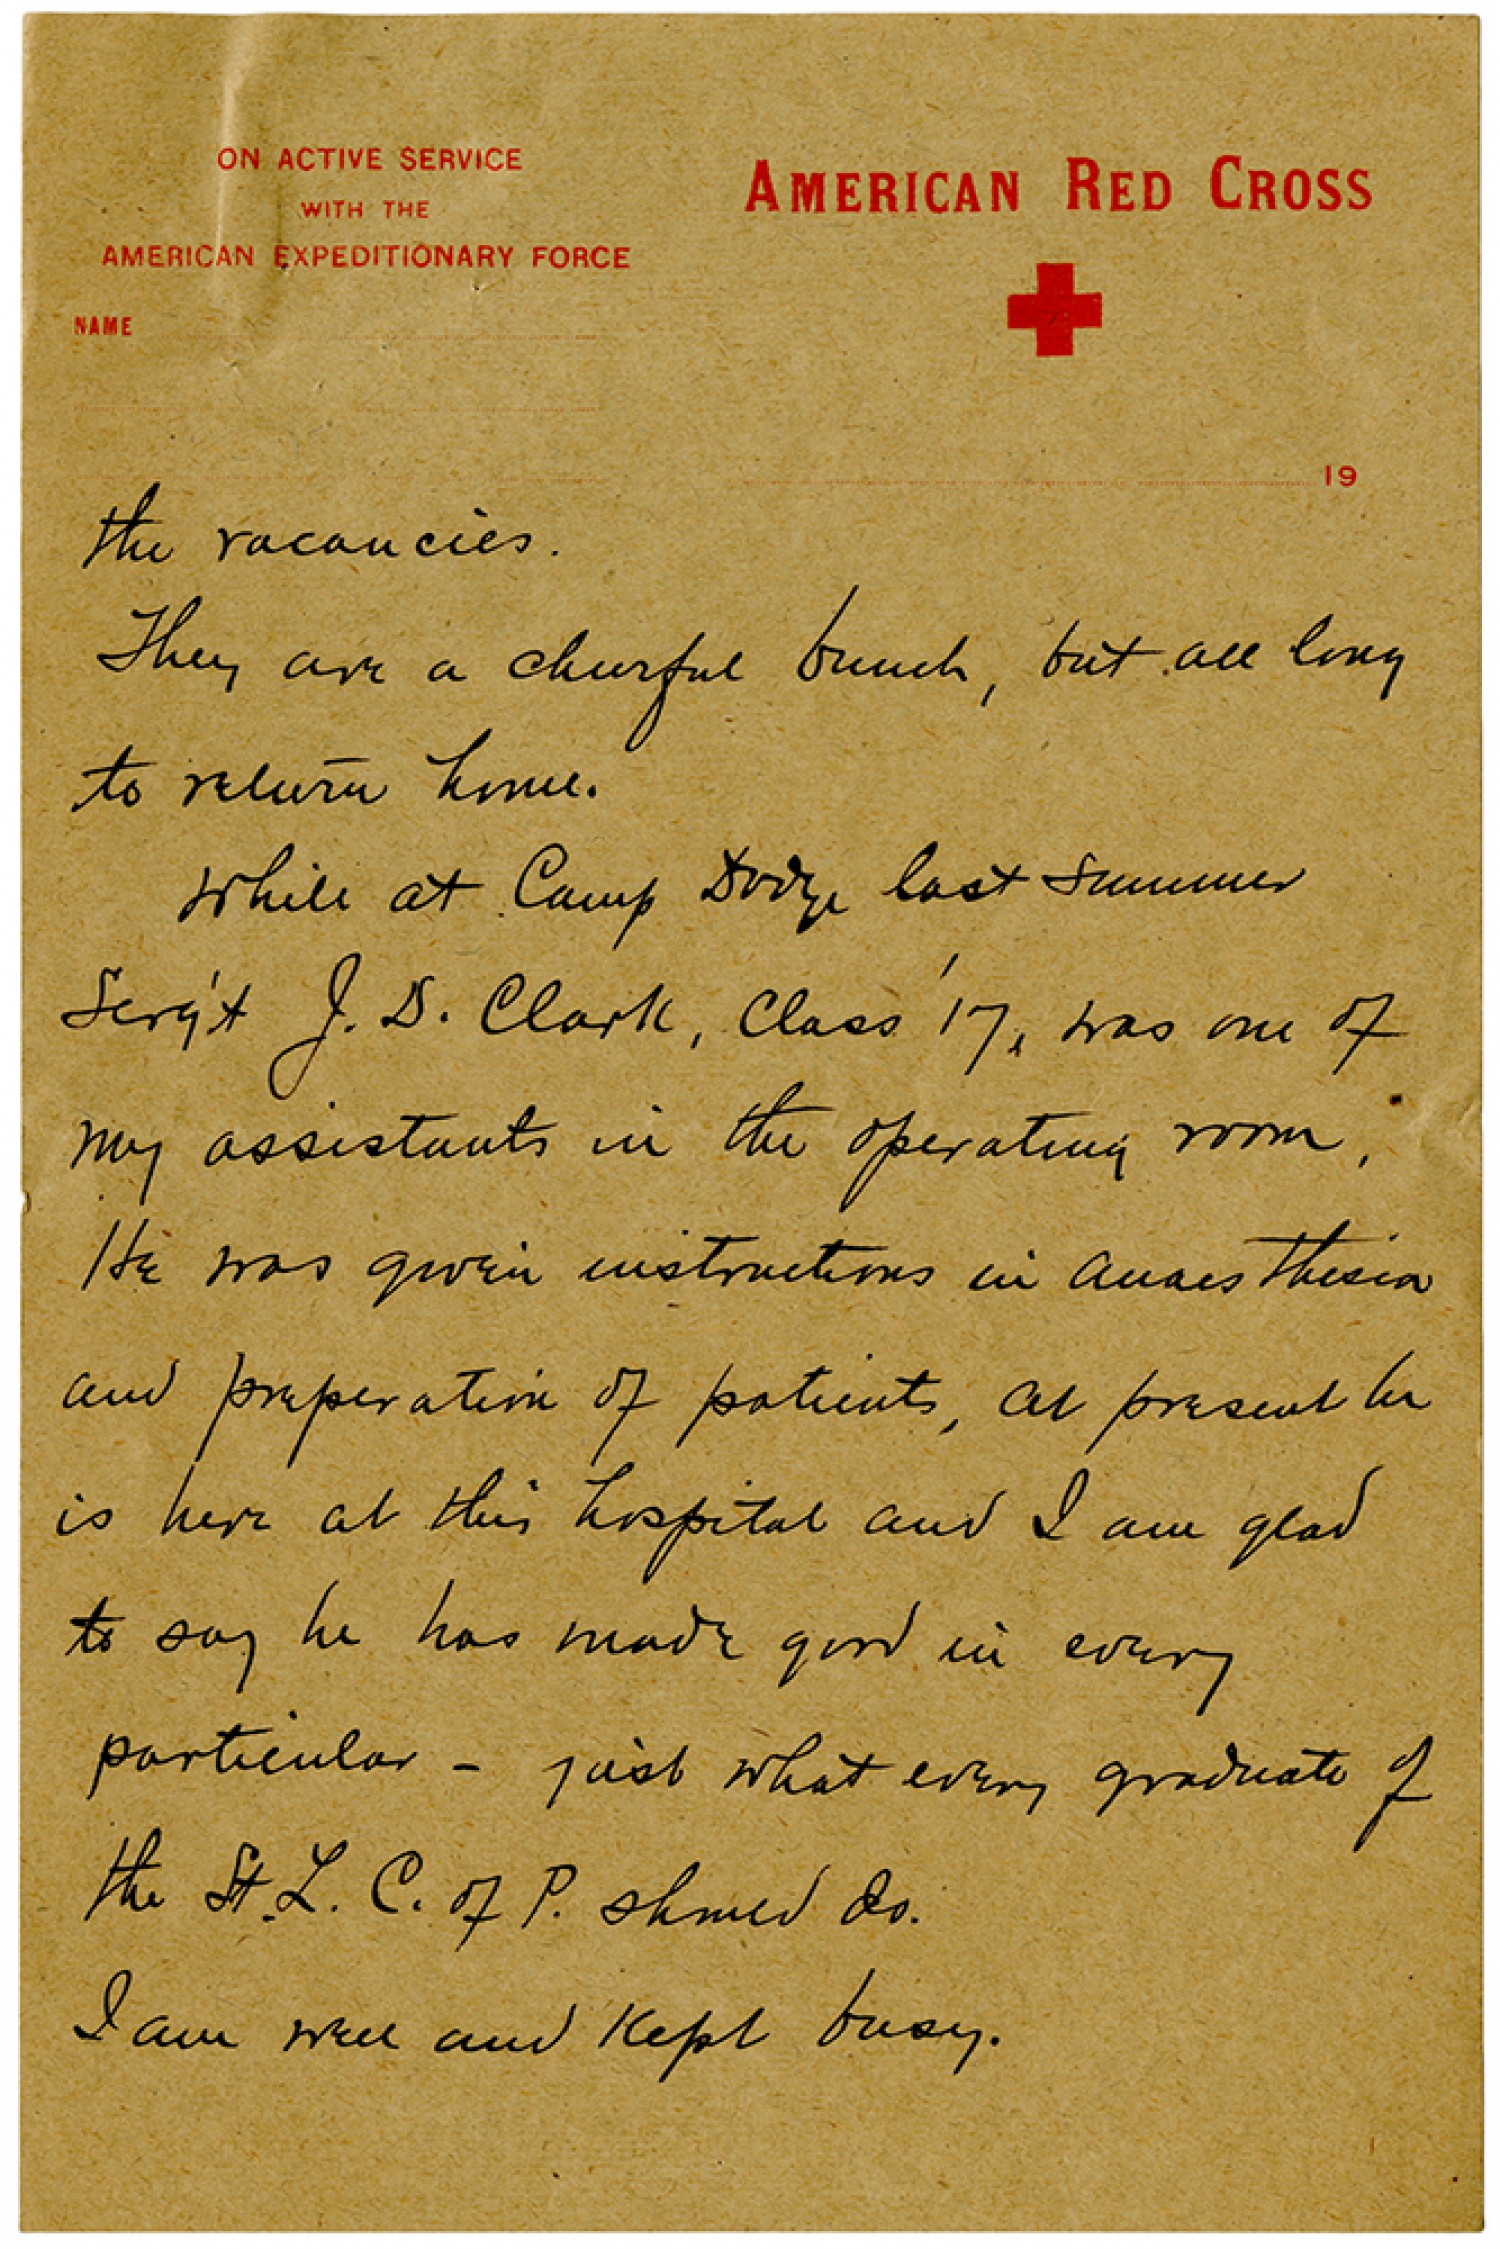 ON ACTIVE SERVICE
WITH THE
AMERICAN EXPEDITIONARY FORCE
NAME
AMERICAN RED CROSS
19
the vacancies.
They are a cheerful bunch, but all long
to return home.
While at Camp Dodge last summer
Serg't J. D. Clark, Class '17, was one of
my assistants in the operating room,
He was given instructions in anaesthesia
and preperation of patients, at present he
is here at this hospital and I am glad
to say he has made good in every
particular - just what every graduate of
the St. L. C. of P. should do.
I am well and kept busy.